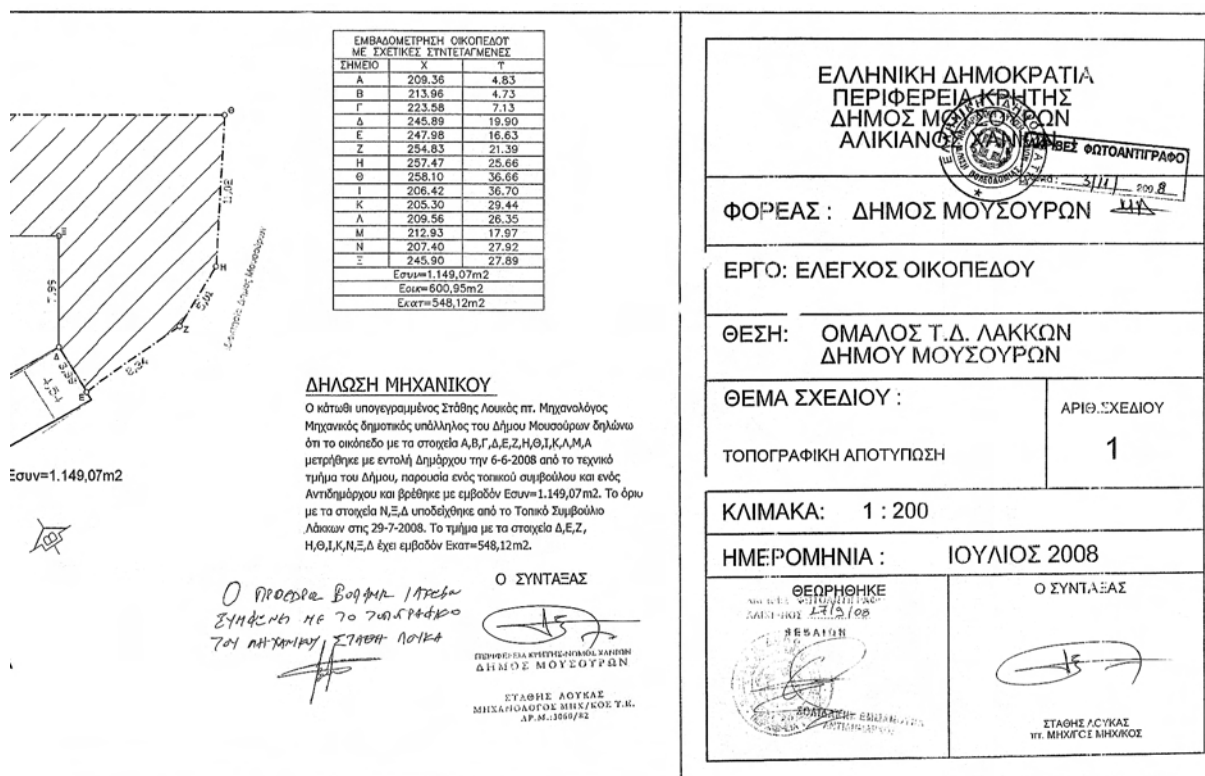 ΕΜΒΑΔΟΜΕΤΡΗΣΗ ΟΙΚΟΠΕΔΟΥ
ΜΕ ΣΧΕΤΙΚΕΣ ΣΥΝΤΕΤΑΓΜΕΝΕΣ
ΣΗΜΕΙΟ Χ Υ
Α 209.36 4.83
Β 213.96 4.73
Γ 223.58 7.13
Δ 245.89 19.90
Ε 247.98 16.63
Ζ 254.83 21.39
Η 257.47 25.66
Θ 258.10 36.66
Ι 206.42 36.70
Κ 205.30 29.44
Λ 209.56 26.35
Μ 212.93 17.97
Ν 207.40 27.92
Ξ 245.90 27.89
Εσυν=1.149,07m2
Εοικ=600,95m2
Εκατ=548,12m2
Θ
Η
Ζ
Ξ
Δ
Ε
5,01
8,34
7,99
3,88
4,54
Εσυν=1.149,07m2
Β
ΔΗΛΩΣΗ ΜΗΧΑΝΙΚΟΥ
Ο κάτωθι υπογεγραμμένος Στάθης Λουκάς πτ. Μηχανολόγος
Μηχανικός δημοτικός υπάλληλος του Δήμου Μουσούρων δηλώνω
ότι το οικόπεδο με τα στοιχεία Α,Β,Γ,Δ,Ε,Ζ,Η,Θ,Ι,Κ,Λ,Μ,Α
μετρήθηκε με εντολή Δημάρχου την 6-6-2008 από το τεχνικό
τμήμα του Δήμου, παρουσία ενός τοπικού συμβούλου και ενός
Αντιδημάρχου και βρέθηκε με εμβαδόν Εσυν=1.149,07m2. Το όριο
με τα στοιχεία Ν,Ξ,Δ υποδείχθηκε από το Τοπικό Συμβούλιο
Λάκκων στις 29-7-2008. Το τμήμα με τα στοιχεία Δ,Ε,Ζ,
Η,Θ,Ι,Κ,Ν,Ξ,Δ έχει εμβαδόν Εκατ=548,12m2.
Ο ΣΥΝΤΑΞΑΣ
ΜΕ ΤΟ ΤΟΠΟΓΡΑΦΙΚΟ
ΤΟΥ ΜΗΧΑΝΙΚΟΥ ΣΤΑΘΗ ΛΟΥΚΑ
ΠΕΡΙΦΕΡΕΙΑ ΚΡΗΤΗΣ-ΝΟΜΟΣ ΧΑΝΙΩΝ
ΔΗΜΟΣ ΜΟΥΣΟΥΡΩΝ
ΣΤΑΘΗΣ ΛΟΥΚΑΣ
ΜΗΧΑΝΟΛΟΓΟΣ ΜΗΧ/ΚΟΣ Τ.Ε.
ΑΡ.Μ.:3060/82
ΕΛΛΗΝΙΚΗ ΔΗΜΟΚΡΑΤΙΑ
ΠΕΡΙΦΕΡΕΙΑ ΚΡΗΤΗΣ
ΔΗΜΟΣ ΜΟΥΣΟΥΡΩΝ
ΑΛΙΚΙΑΝΟΣ ΧΑΝΙΩΝ
ΑΚΡΙΒΕΣ ΦΩΤΟΑΝΤΙΓΡΑΦΟ
3/11 2008
ΦΟΡΕΑΣ : ΔΗΜΟΣ ΜΟΥΣΟΥΡΩΝ
ΕΡΓΟ: ΕΛΕΓΧΟΣ ΟΙΚΟΠΕΔΟΥ
ΘΕΣΗ: ΟΜΑΛΟΣ Τ.Δ. ΛΑΚΚΩΝ
ΔΗΜΟΥ ΜΟΥΣΟΥΡΩΝ
ΘΕΜΑ ΣΧΕΔΙΟΥ :
ΤΟΠΟΓΡΑΦΙΚΗ ΑΠΟΤΥΠΩΣΗ
ΑΡΙΘ.ΣΧΕΔΙΟΥ
1
ΚΛΙΜΑΚΑ: 1 : 200
ΗΜΕΡΟΜΗΝΙΑ : ΙΟΥΛΙΟΣ 2008
ΘΕΩΡΗΘΗΚΕ
17/9/08
Ο ΣΥΝΤΑΞΑΣ
ΣΤΑΘΗΣ ΛΟΥΚΑΣ
πτ. ΜΗΧ/ΓΟΣ ΜΗΧ/ΚΟΣ